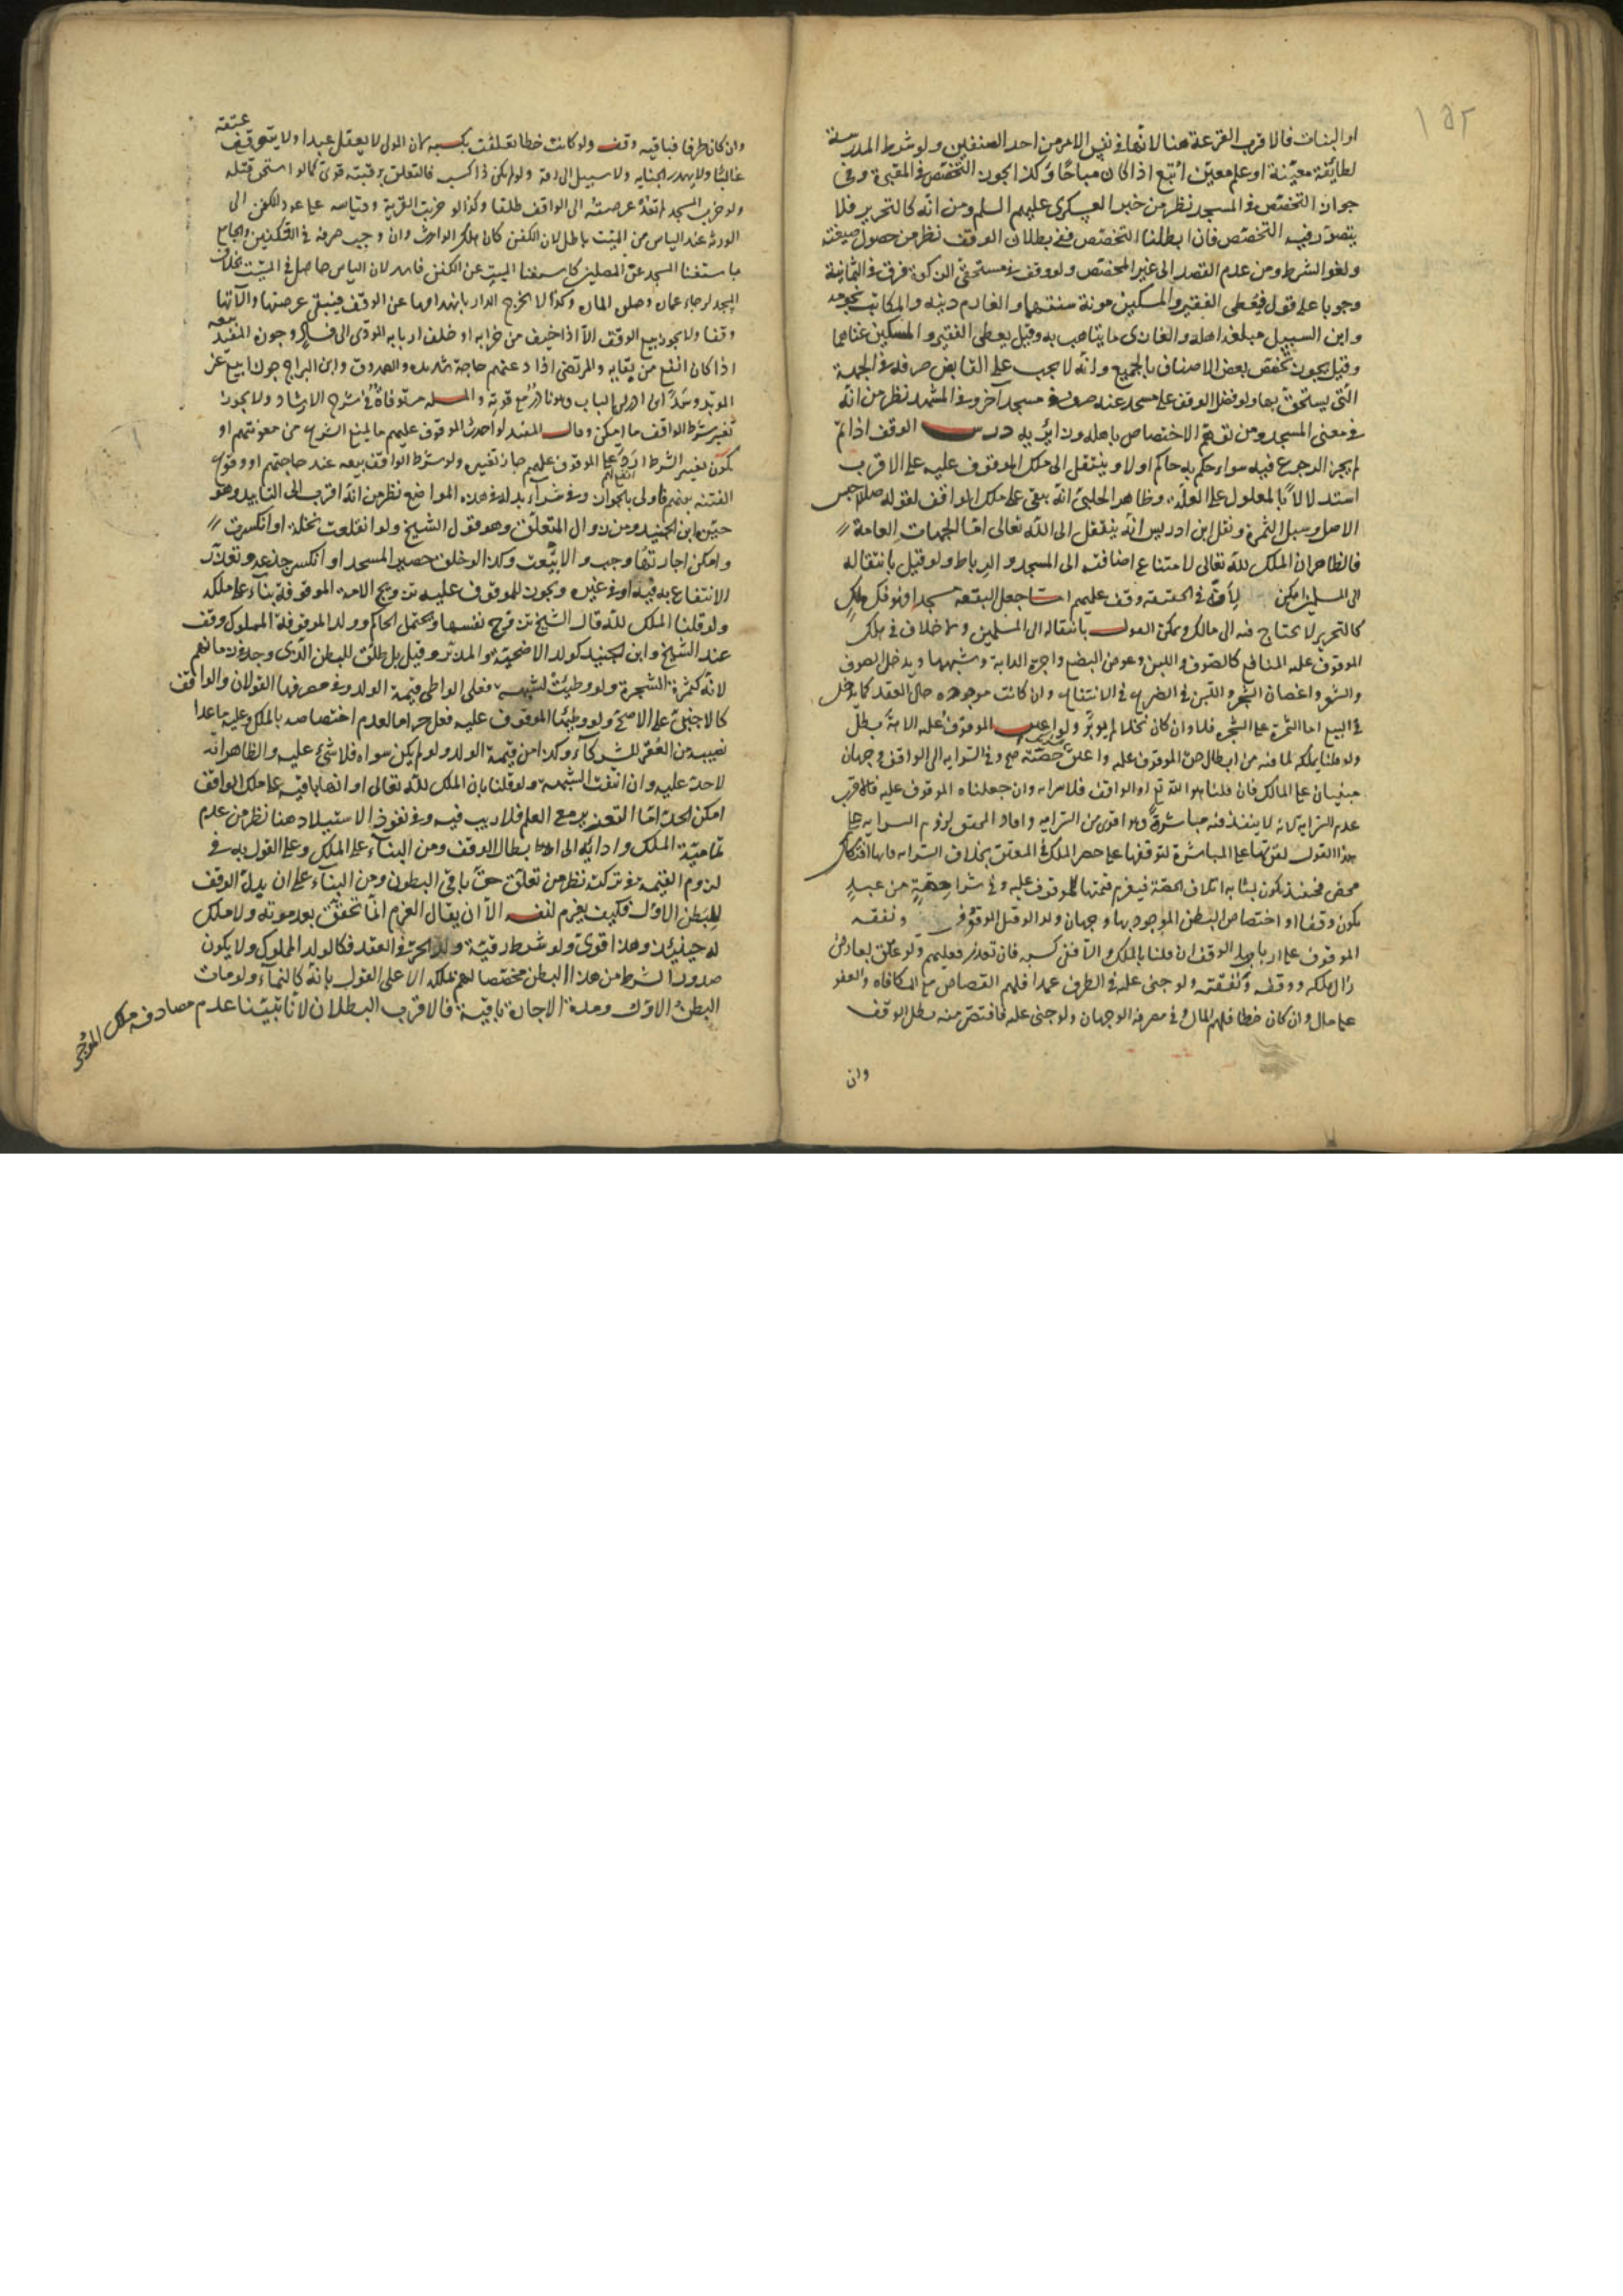 ١٥٢
او البنات فالاقرب القرعة هنا لانها في نفس الامر من احد الصنفين ولو شرط المدرسة
لطايفة معينة او علم معين اتبع اذا كان مباحا وكذا يجوز التخصص في المقبرة وفي
جواز التخصص في المسجد نظر من خبر العسكري عليهم السلم ومن انه كالتحرير فلا
يتصور فيه التخصص فان ابطلنا التخصص ففي بطلان الوقف نظر من حصول صيغته
ولغو الشرط ومن عدم القصد الى غير المختص ولو وقف في مستحقي الزكوة فرق في الثمانية
وجوبا على قول فيعطى الفقير والمسكين مونة سنتهما والغارم دينه والمكاتب نجومه
وابن السبيل مبلغه اهله والغازى ما يتاهب به وقيل يعطى الفقير والمسكين غناهما
وقيل يجوز تخصص بعض الاصناف بالجميع وانه لا يجب على القابض صرفه في الجهة
التي يستحق بها ولو فضل الوقف على مسجد عنه صرف في مسجد آخر وفي المشهد نظر من انه
في معنى المسجد ومن توهم الاختصاص باهله وزائريه درس الوقف اذا تم
لم يجز الرجوع فيه سواء حكم به حاكم اولا وينتقل الى ملك الموقوف عليه على الاقرب
استدلالا بالمعلول على العلة وظاهر الحلبي انه يبقى على ملك الواقف لقوله حبس
الاصل وسبل الثمرة ونقل ابن ادريس انه ينتقل الى الله تعالى اما الجهات العامة
فالظاهر ان الملك لله تعالى لامتناع اضافته الى المسجد والرباط ولو قيل بانتقاله
الى المسلمين امكن لانه في الحقيقة وقف عليهم اما جعل البقعة مسجدا فهو فك ملك
كالتحرير لا يحتاج فيه الى مالك ويمكن القول بانتقاله الى المسلمين ولا خلاف في ملك
الموقوف عليه المنافع كالصوف واللبن وعوض البضع واجرة الدابة وشبهها ويدخل الصوف
والشعر واغصان الشجر واللبن في الضرع في الانتفاع وان كانت موجودة حال العقد كما يدخل
في البيع اما الثمرة على الشجر فلا وان كان نخلا لم يؤبر ولو اعتق الموقوف عليه الامة بطل
ولو قلنا يملكه لما فيه من ابطال حق الموقوف عليه ولو اعتق حصته صح وفي السراية الى الواقف وجهان
مبنيان على المالك فان قلنا هو الله تع او الواقف فلا سراية وان جعلناه الموقوف عليه فالاقرب
عدم السراية لانه لا ينفذ فيه مباشرة وهو اقوى من السراية وافاد المحقق لزوم السراية على
هذا القول لان العتق على المباشرة لتوقفها على حصر الملك في المعتق بخلاف السراية فانها افتكاك
محض فحينئذ يكون بمثابة اتلاف الحصة فيغرم قيمتها للموقوف عليه وفي شرا حصة من عبد
يكون وقفا او اختصاص البطن الموجود بها وجهان ونفقه
الموقوف على ارباب الوقف ان قلنا بالملك والا ففي كسبه فان تعذر فعليهم ولو عتق بعارض
زال ملكه ووقفه ونفقته ولو جنى عليه في الطرف عمدا فلهم القصاص مع المكافاة والعفو
على مال وان كان خطا فلهم المال وفي مصرفه الوجهان ولو جنى عليه فاقتص منه بطل الوقف
وان
وان كان طرفا فباقيه وقف ولو كانت خطا تعلقت بكسبه لان المولى لا يعقل عبدا ولا يتوقع عتقه
غالبا ولا يهدر الجناية ولا سبيل الى رقه ولو لم يكن ذا كسب فالتعلق برقبته قوى كما لو استحق قتله
ولو خرب المسجد لم تعد عرصته الى الواقف مطلقا وكذا لو خربت القرية وقياسه على عود الكفن الى
الورثة عند الياس من الميت باطل لان الكفن كان ملك الوارث وان وجب صرفه في التكفين والجامع
باستغنا المسجد عن المصلين كاستغنا الميت عن الكفن فاسد لان الياس حاصل في الميت بخلاف
المسجد لرجاء عمارة وصلوة المارة وكذا لا تخرج الدار بانهدامها عن الوقف فيبقى عرصتها وآلاتها
وقفا ولا يجوز بيع الوقف الا اذا خيف من خرابه او خلف اربابه المودى الى فساد وجوز المفيد بيعه
اذا كان انفع من بقايه والمرتضى اذا دعتهم حاجة شديدة والصدوق وابن البراج جوزا بيع غير
المؤبد وسد ابن ادريس الباب وهو نادر مع قوته والمسله مستوفاة في شرح الارشاد ولا يجوز
تغير شرط الواقف ما امكن وقال المفيد لو احدث الموقوف عليهم ما يمنع الشرع من معونتهم او
يكون تغيير الشرط ارد على الموقوف عليهم جاز تغييره ولو شرط الواقف بيعه عند حاجتهم او وقوع
الفتنة بينهم فاولى بالجواز وفي شراء بدله في هذه المواضع نظر من انه اقرب الى التابيد وهو
خيرة ابن الجنيد ومن زوال المتعلق وهو قول الشيخ ولو انقلعت نخلة او انكسرت
وامكن اجارتها وجب والا بيعت وكذا لو خلق حصير المسجد او انكسر جذعه وتعذر
الانتفاع به فيه او في غيره ويجوز للموقوف عليه تزويج الامة الموقوفة بناء على ملكه
ولو قلنا الملك لله قال الشيخ تزوج نفسها ويحتمل الحاكم وولد الموقوفة المملوك وقف
عند الشيخ وابن الجنيد كولد الاضحية والمدبر وقيل بل طلق للبطن الذى وجد في زمانهم
لانه كثمرة الشجرة ولو وطئت لشبهة فعلى الواطي قيمة الولد وفي مصرفها القولان والواقف
كالاجنبي على الاصح ولو وطيها الموقوف عليه فعل حراما لعدم اختصاصه بالملك وعليه ما عدا
نصيبه من العقر للشركاء وكذا من قيمة الولد ولو لم يكن سواه فلا شئ عليه والظاهر انه
لا حد عليه وان انتفت الشبهة ولو قلنا بان الملك لله تعالى او انها باقية على ملك الواقف
امكن الحد اما التعزير مع العلم فلا ريب فيه وفي نفوذ الاستيلاد هنا نظر من عدم
تمامية الملك وادائه الى ابطال الوقف ومن البناء على الملك وعلى القول به في
لزوم القيمة في تركته نظر من تعلق حق باقي البطون ومن البناء على ان بدل الوقف
للبطن الاول فكيف يغرم لنفسه الا ان يقال الغرم انما تحقق بعد موته ولا ملك
له حينئذ وهذا اقوى ولو شرط رقية ولد الحر في العقد فكالولد المملوك ولا يكون
صدور الشرط من هذا البطن مخصصا لهم بملكه الا على القول بانه كالنماء ولو مات
البطن الاول ومدة الاجارة باقية فالاقرب البطلان لانا تبينا عدم مصادفة ملك الموجر